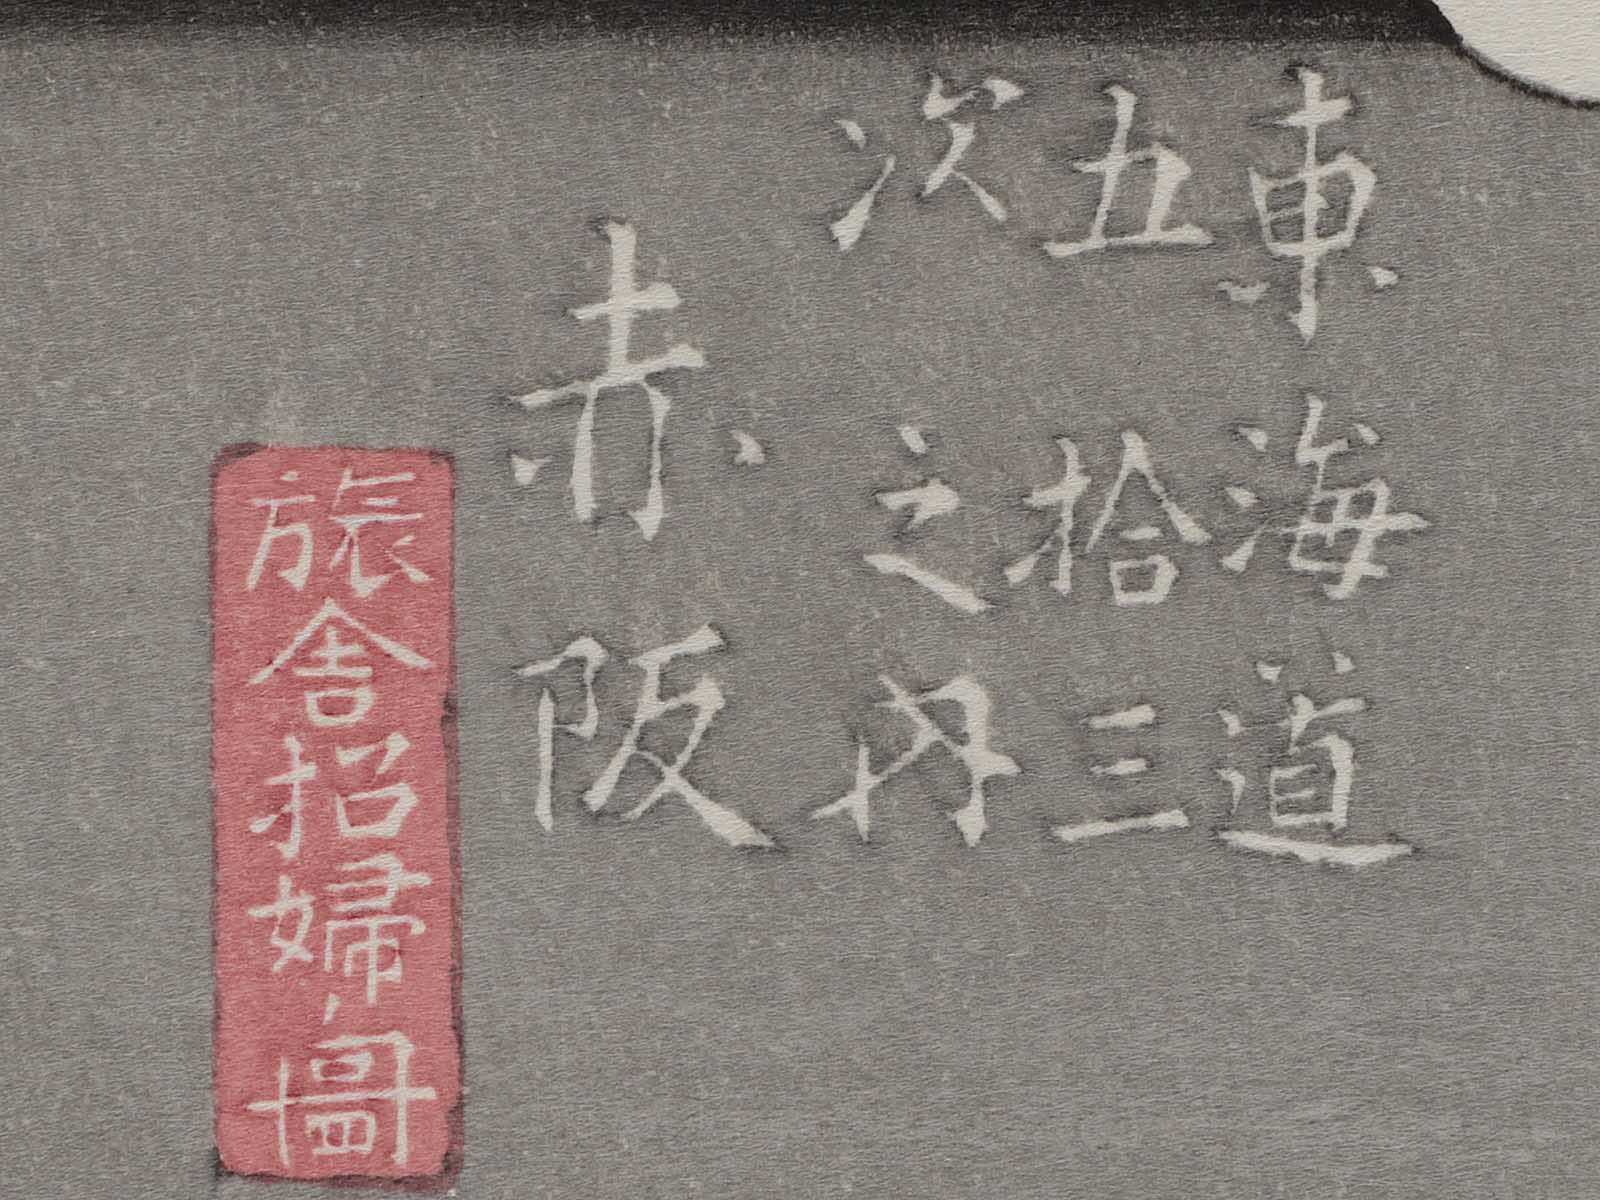 東海道
五拾三
次之内
赤阪
旅舎招婦ノ圖